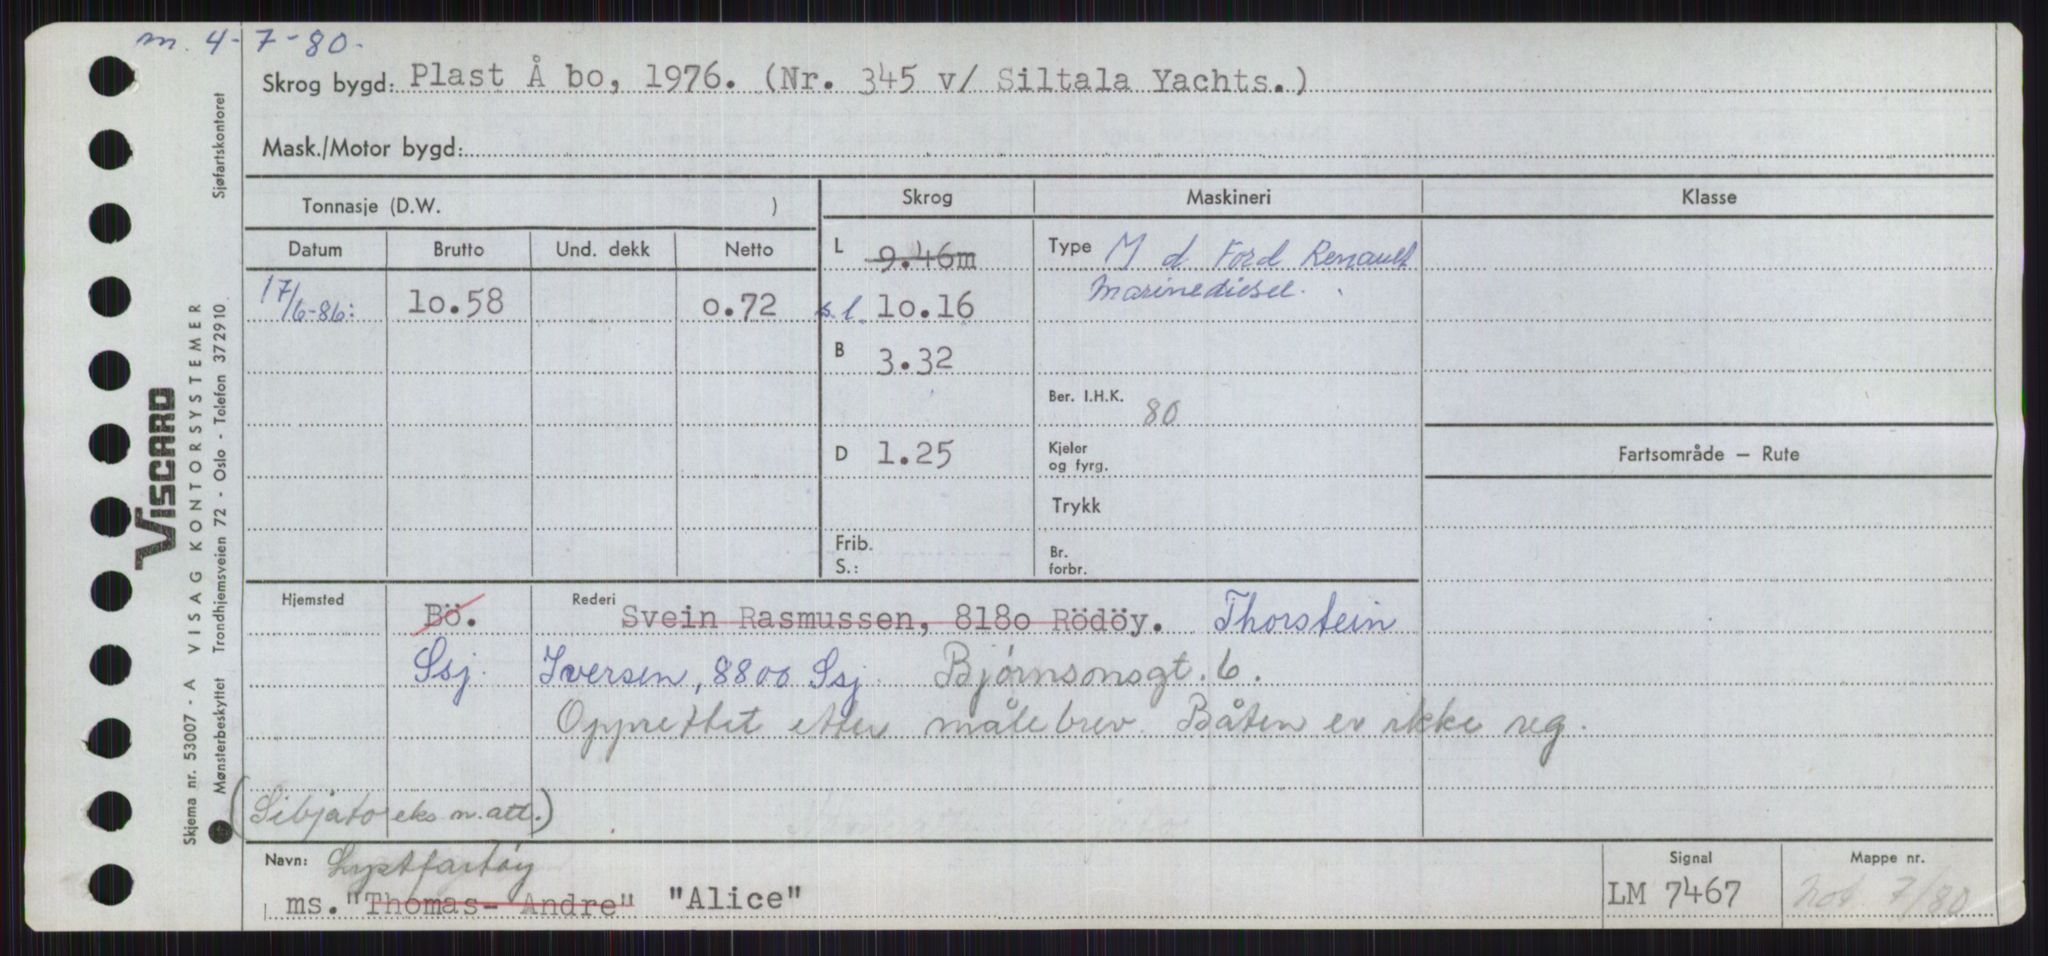 m. 4-7-80.
Skrog bygd: Plast Å bo, 1976. (Nr. 345 v/ Siltala Yachts.)
Mask./Motor bygd:
Tonnasje (D.W. )
Skrog
Maskineri
Klasse
Datum Brutto Und. dekk Netto
L 9.46m
Type M d Ford Renault
Marinediesel.
17/6-86: 10.58 0.72
s.l. 10.16
B 3.32
Ber. I.H.K. 80
D 1.25
Kjeler
og fyrg.
Fartsområde — Rute
Trykk
Frib.
S.:
Br.
forbr.
Hjemsted Bö. Rederi Svein Rasmussen, 8180 Rödöy. Thorstein
Ssj. Iversen, 8800 Ssj. Bjørnsonsgt. 6.
Opprettet etter målebrev. Båten er ikke reg.
(Sibjato eks n. att.)
Navn: Lystfartöy
ms. "Thomas- Andre" "Alice"
Signal
LM 7467
Mappe nr.
Not 7/80
Sjøfartskontoret
VISCARD
VISAG KONTORSYSTEMER
Trondhjemsveien 72 - Oslo - Telefon 372910
Skjema nr. 53007 - A
Mønsterbeskyttet